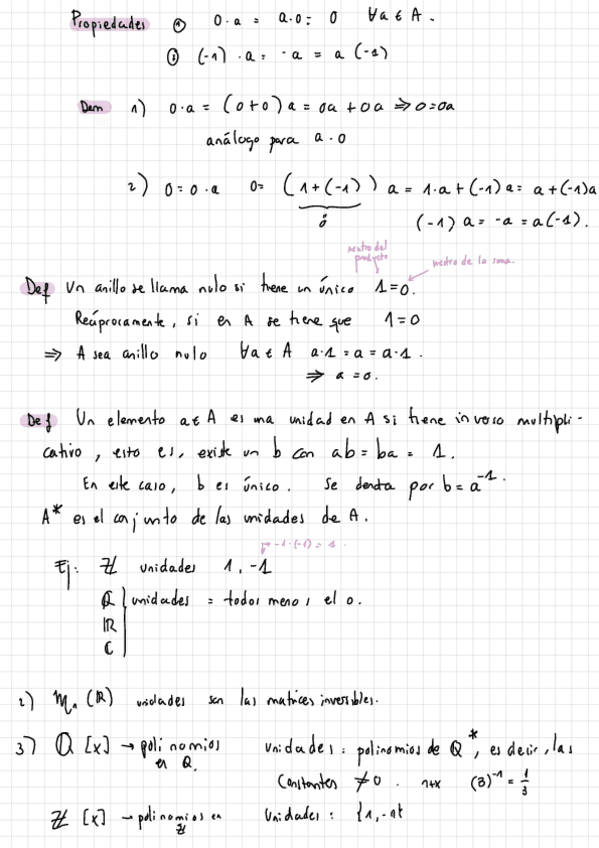 Propiedades ① 0·a = a·0 = 0 ∀a ∈ A.
② (-1)·a = -a = a(-1)
Dem 1) 0·a = (0+0)a = 0a + 0a ⇒ 0=0a
análogo para a·0
2) 0=0·a 0= (1+(-1))a = 1·a+(-1)a = a+(-1)a
0
(-1)a = -a = a(-1).
neutro del
producto
neutro de la suma.
Def Un anillo se llama nulo si tiene un único 1=0.
Recíprocamente, si en A se tiene que 1=0
⇒ A sea anillo nulo ∀a ∈ A a·1 = a = a·1.
⇒ a = 0.
Def Un elemento a∈A es una unidad en A si tiene inverso multipli-
cativo, esto es, existe un b con ab = ba = 1.
En este caso, b es único. Se denota por b = a⁻¹.
A* es el conjunto de las unidades de A.
-1·(-1) = 1.
Ej: ℤ unidades 1, -1
ℚ unidades = todos menos el 0.
ℝ
ℂ
2) Mn(ℝ) unidades son las matrices inversibles.
3) ℚ[x] → polinomios en ℚ. Unidades: polinomios de ℚ*, es decir, las
constantes ≠0. 1+x (3)⁻¹ = 1/3
ℤ[x] → polinomios en ℤ Unidades: {1,-1}